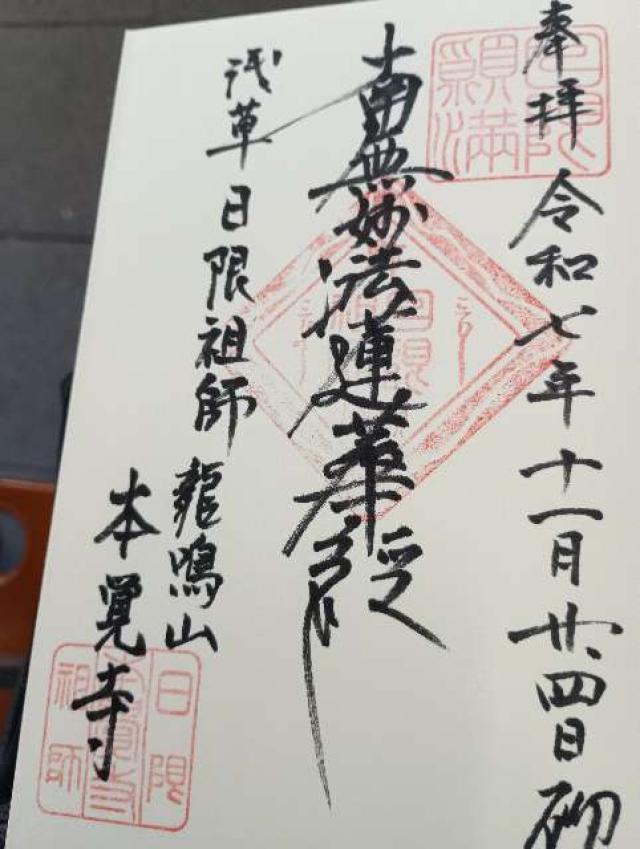 奉拝 令和七年十一月廿四日 砌
南無妙法蓮華経
浅草日限祖師 龍鳴山
本覚寺
日限願満
日限
日限
本覺寺
祖師